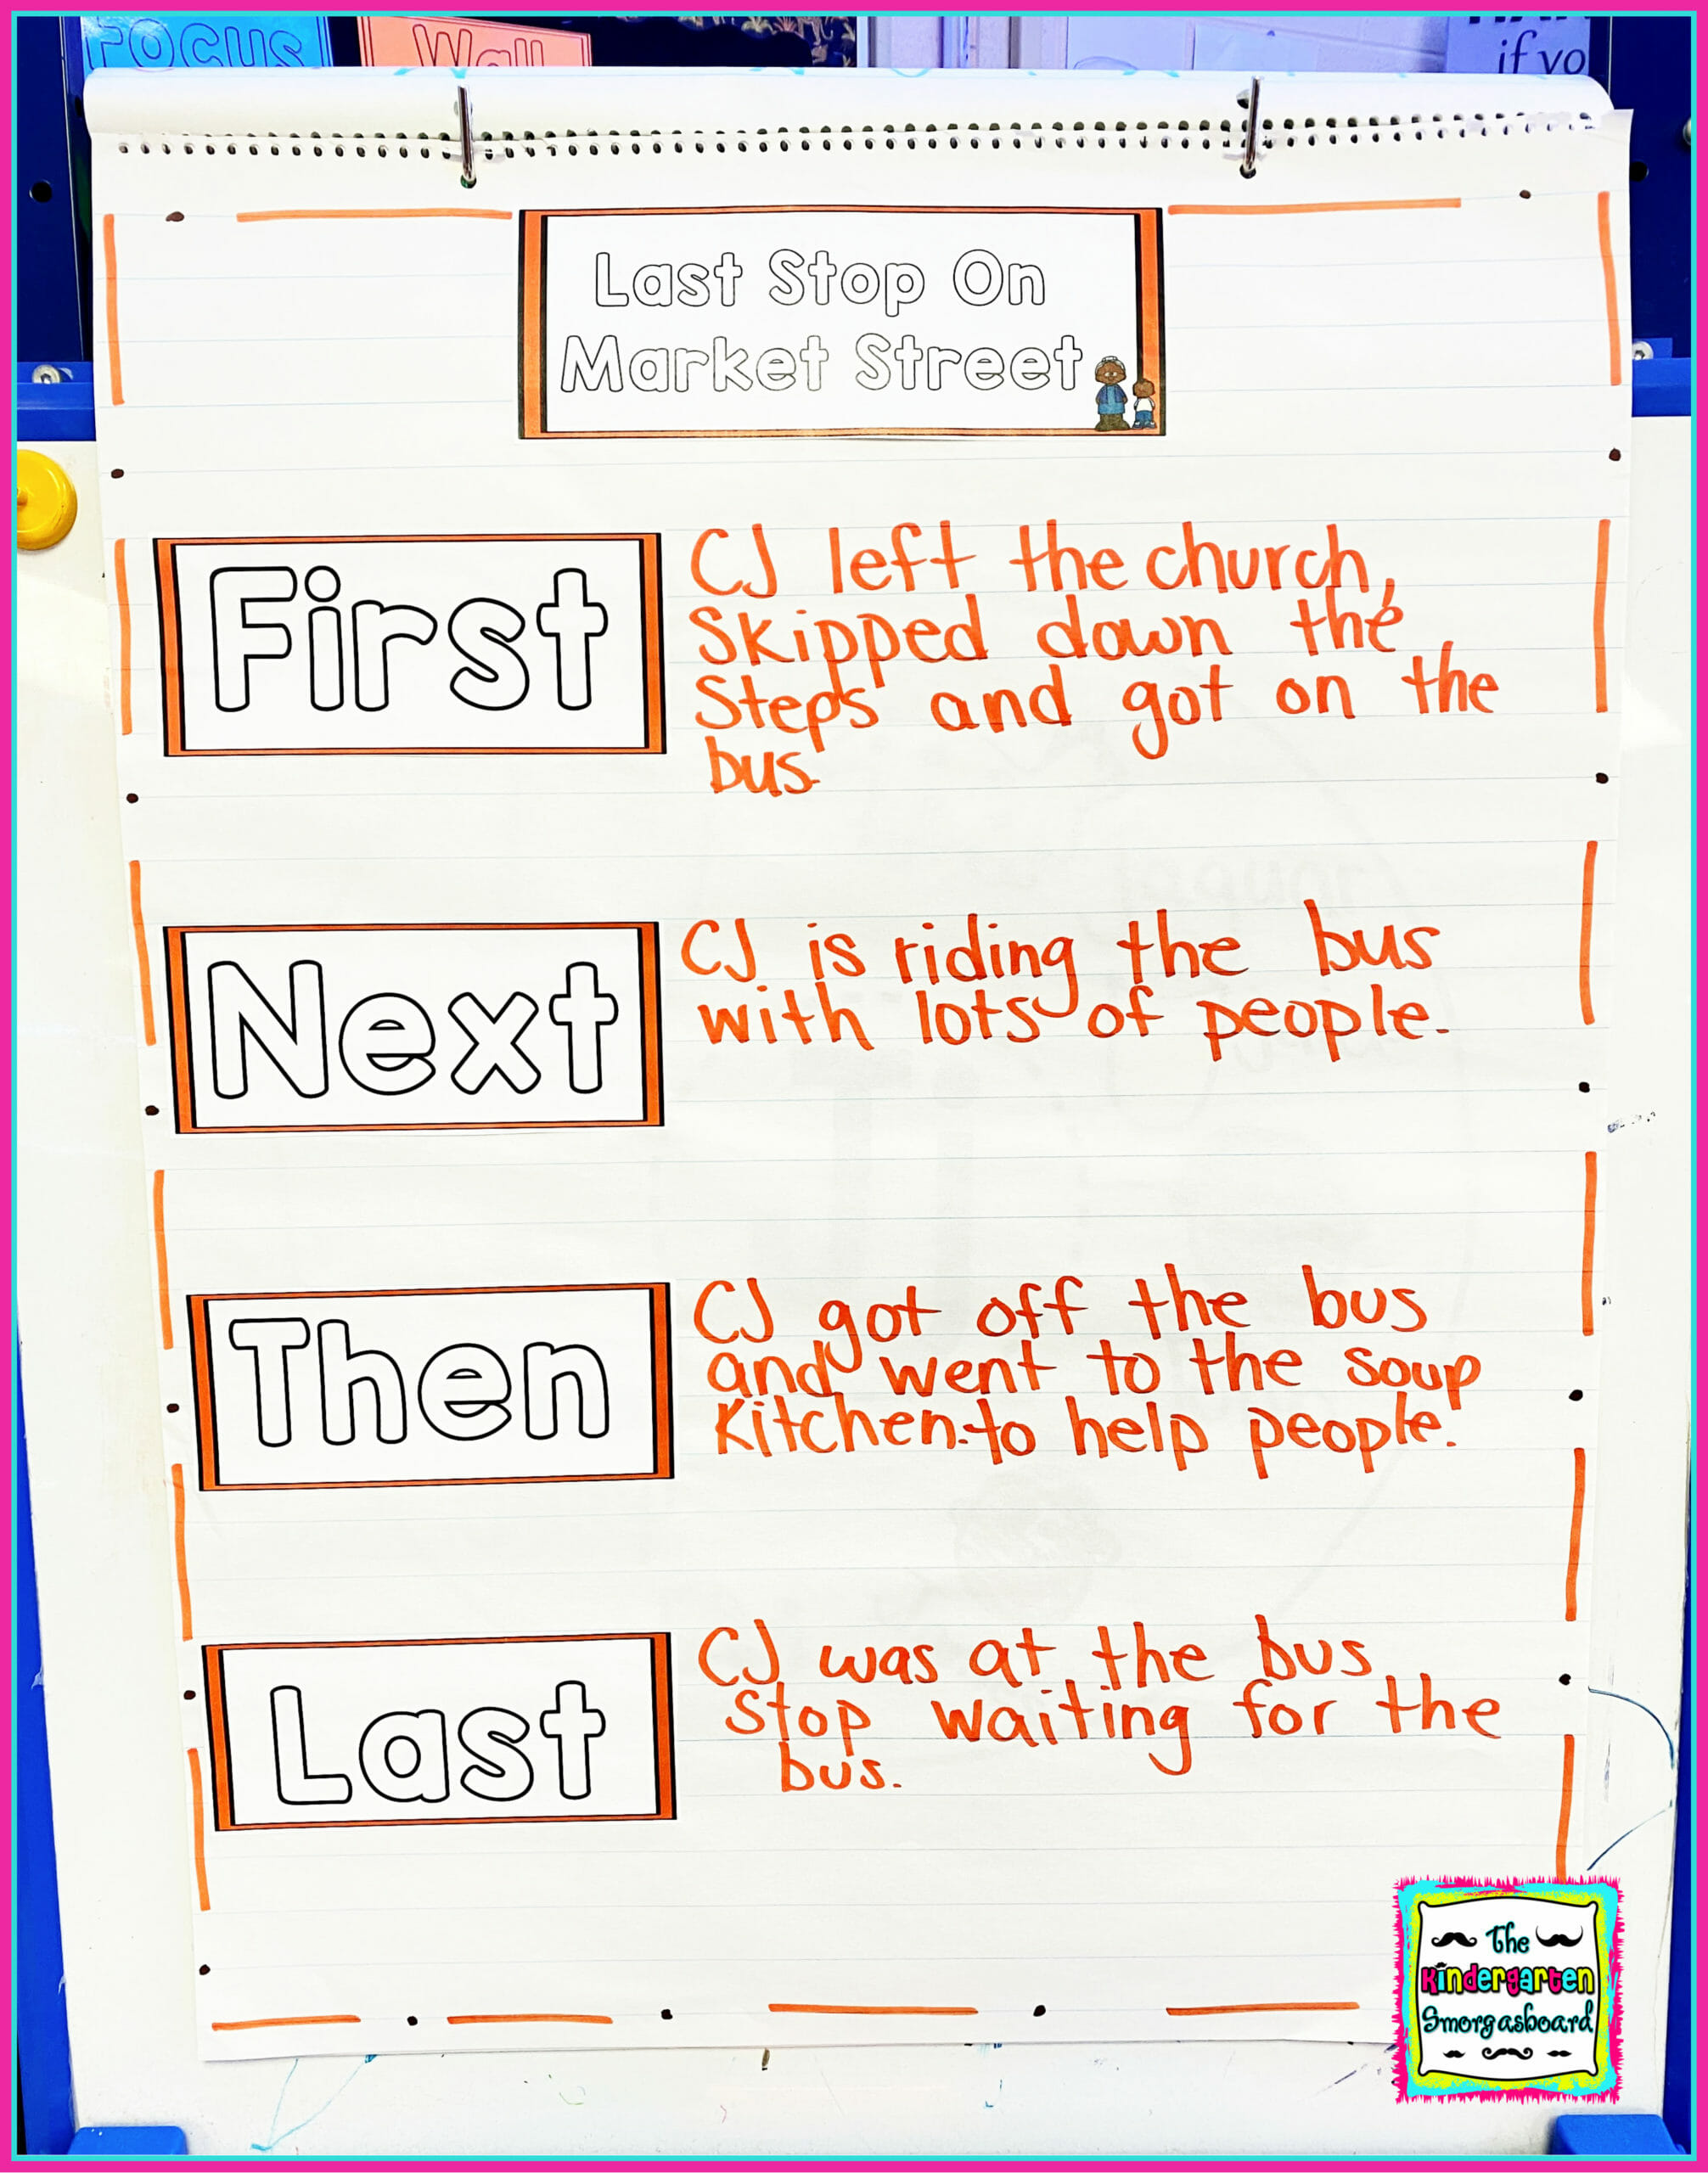 FOCUS
Wall
if yo
Last Stop On
Market Street
First
CJ left the church,
skipped down the
steps and got on the
bus.
Next
CJ is riding the bus
with lots of people.
Then
CJ got off the bus
and went to the soup
Kitchen.to help people.
Last
CJ was at the bus
stop waiting for the
bus.
The
Kindergarten
Smorgasboard